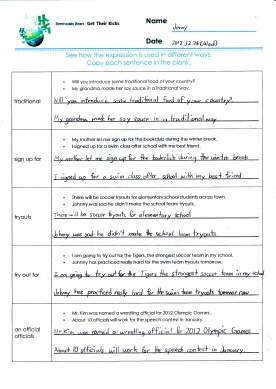 Berenstain Bears Get Their Kicks
Name Jenny
Date 2012.12.26(Wed)
See how the expression is used in different ways.
Copy each sentence in the blank.
traditional
• Will you introduce some traditional food of your country?
• My grandma made her soy sauce in a traditional way.
Will you introduce some traditional food of your country?
My grandma made her soy sauce in a traditional way.
sign up for
• My mother let me sign up for the bookclub during the winter break.
• I signed up for a swim class after school with my best friend.
My mother let me sign up for the bookclub during the winter break.
I signed up for a swim class after school with my best friend.
tryouts
• There will be soccer tryouts for elementary school students across town.
• Johnny was sad he didn't make the school team tryouts.
There will be soccer tryouts for elementary school
Johnny was sad he didn't make the school team tryouts.
try out for
• I am going to try out for the Tigers, the strongest soccer team in my school.
• Johnny has practiced really hard for the swim team tryouts tomorrow.
I am going to try out for the Tigers the strongest soccer team in my school
Johnny has practiced really hard for the swim team tryouts tomorrow
an official
officials
• Mr. Kim was named a wrestling official for 2012 Olympic Games.
• About 10 officials will work for the speech contest in January.
Mr. Kim was named a wrestling official for 2012 Olympic Games.
About 10 officials will work for the speech contest in January.